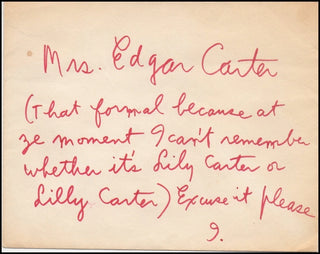 Mrs. Edgar Carter
(That formal because at
ze moment I can't remember
whether it's Lily Carter or
Lilly Carter) Excuse it please
I.